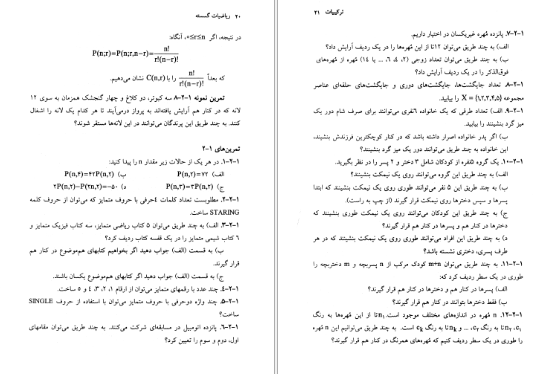 ۲۰ ریاضیات گسسته
در نتیجه، اگر ۰≤r≤n، آنگاه:
P(n;r)=P(n;r,n−r)= n!/r!(n−r)!
که بعداً n!/r!(n−r)! را با C(n,r) نشان می‌دهیم.
تمرین نمونه ۱-۸A سه کبوتر، دو کلاغ و چهار گنجشک همزمان به سوی ۱۲
لانه که در کنار هم آرایش یافته‌اند به پرواز درمی‌آیند تا هر کدام یک لانه را اشغال
کنند. به چند طریق این پرندگان می‌توانند در این لانه‌ها مستقر شوند؟
تمرین‌های ۱-۲
۱-۲-۱. در هر یک از حالات زیر مقدار n را پیدا کنید:
الف) P(n,۲)=۷۲ ب) P(n,۴)=۴۲P(n,۲)
ج) ۲P(n,۲)=P(۲n,۲)−۵۰ د)
۱-۲-۲. مطلوبست تعداد کلمات ٤حرفی با حروف متمایز که می‌توان از حروف کلمه
STARING ساخت.
۱-۲-۳. الف) به چند طریق می‌توان ۵ کتاب ریاضی متمایز، سه کتاب فیزیک متمایز و
۶ کتاب شیمی متمایز را در یک قفسه کتاب ردیف کرد؟
ب) به قسمت (الف) جواب دهید اگر بخواهیم کتابهای هم‌موضوع در کنار هم
قرار گیرند.
ج) به قسمت (الف) جواب دهید اگر کتابهای هم‌موضوع یکسان باشند.
۱-۲-٤. چند عدد با رقمهای متمایز می‌توان از ارقام ۱، ۲، ۳، ٤ و ۵ ساخت.
۱-۲-۵. چند واژه دوحرفی با حروف متمایز می‌توان با استفاده از حروف SINGLE
ساخت؟
۱-۲-۶. پانزده اتومبیل در مسابقه‌ای شرکت می‌کنند. به چند طریق می‌توان مقامهای
اول، دوم و سوم را تعیین کرد؟
ترکیبیات ۲۱
۱-۲-۷. پانزده مُهره غیریکسان در اختیار داریم.
الف) به چند طریق می‌توان ۱۲تا از این مُهره‌ها را در یک ردیف آرایش داد؟
ب) به چند طریق می‌توان تعداد زوجی (۲، ٤، ۶، ... یا ۱٤) مُهره از مُهره‌های
فوق‌الذکر را در یک ردیف آرایش داد؟
۱-۲-۸. تعداد جایگشت‌ها، جایگشت‌های دوری و جایگشت‌های حلقه‌ای عناصر
مجموعه X = {۱,۲,۳,۴,۵} را بیابید.
۱-۲-۹. الف) تعداد طرقی که یک خانواده ۶نفری می‌توانند برای صرف شام دور یک
میز گرد بنشینند را بیابید.
ب) اگر پدر خانواده اصرار داشته باشد که در کنار کوچکترین فرزندش بنشیند،
این خانواده به چند طریق می‌توانند دور یک میز گرد بنشینند؟
۱-۲-۱۰. یک گروه ۵نفره از کودکان شامل ۳ دختر و ۲ پسر را در نظر بگیرید.
الف) به چند طریق این گروه می‌توانند روی یک نیمکت بنشینند؟
ب) به چند طریق این ۵ نفر می‌توانند طوری روی یک نیمکت بنشینند که ابتدا
پسرها و سپس دخترها روی نیمکت قرار گیرند (از چپ به راست).
ج) به چند طریق این کودکان می‌توانند روی یک نیمکت طوری بنشینند که
دخترها در کنار هم و پسرها در کنار هم قرار گیرند؟
د) به چند طریق این افراد می‌توانند طوری روی یک نیمکت بنشینند که در هر
طرف پسری، دختری نشسته باشد؟
۱-۲-۱۱. به چند طریق می‌توان m+n کودک مرکب از n پسربچه و m دختربچه را
طوری در یک سطر ردیف کرد که:
الف) پسرها در کنار هم و دخترها در کنار هم قرار گیرند؟
ب) فقط دخترها بتوانند در کنار هم قرار گیرند؟
۱-۲-۱۲. n مُهره در اندازه‌های مختلف موجود است. n₁تا از این مُهره‌ها به رنگ
c₁، n₂تا به رنگ c₂، ... و nₖتا به رنگ cₖ است. به چند طریق می‌توانیم این n مُهره
را طوری در یک سطر ردیف کنیم که مُهره‌های همرنگ در کنار هم قرار گیرند؟